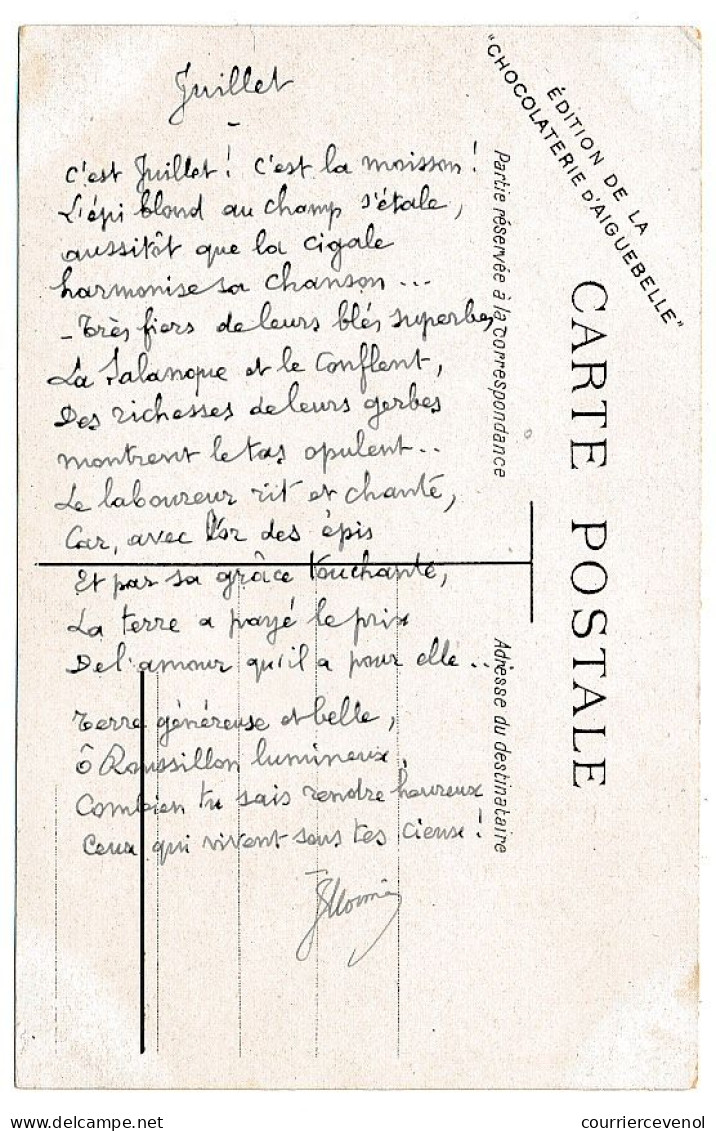 Juillet
-
C'est Juillet ! C'est la moisson !
L'épi blond au champ s'étale,
aussitôt que la cigale
harmonise sa chanson ...
- Très fiers de leurs blés superbes
La Salanque et le Conflent,
Des richesses de leurs gerbes
montrent le tas opulent..
Le laboureur rit et chante,
Car, avec l'or des épis
Et par sa grâce touchante,
La terre a payé le prix
De l'amour qu'il a pour elle ..
Terre généreuse et belle,
ô Roussillon lumineux,
Combien tu sais rendre heureux
Ceux qui vivent sous tes cieux !
ÉDITION DE LA
"CHOCOLATERIE D'AIGUEBELLE"
CARTE POSTALE
Partie réservée à la correspondance
Adresse du destinataire
courriercevenol